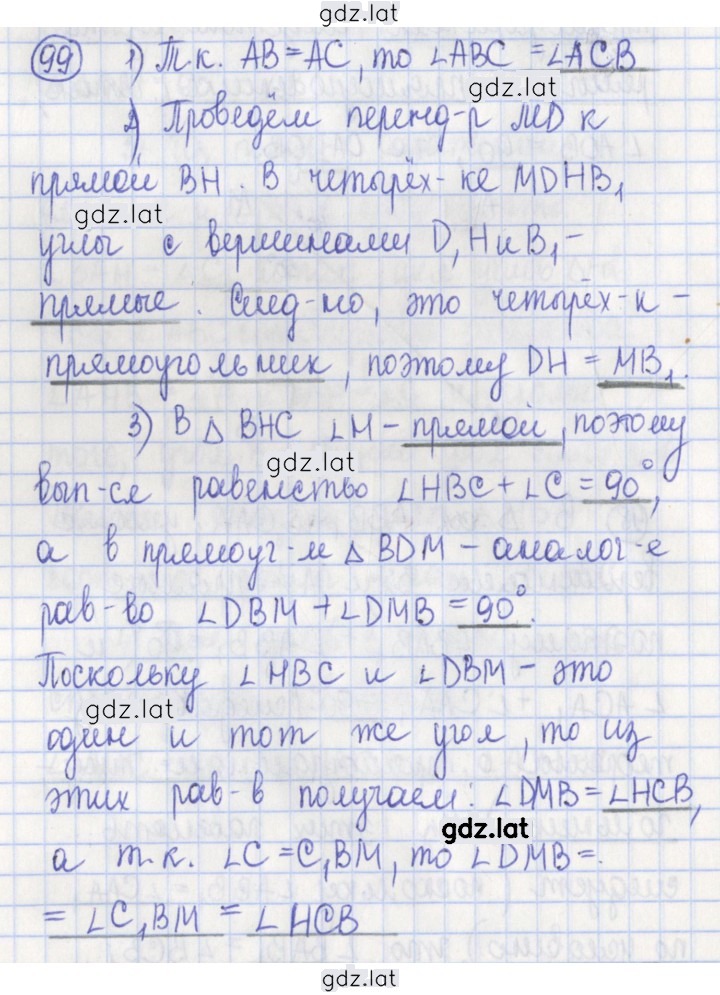 gdz.lat
99 1) Т.к. AB = AC, то ∠ABC = ∠ACB
gdz.lat
2) Проведём перенд-р MD к
прямой BH. В четырёх-ке MDHB₁
gdz.lat
углы с вершинами D, H и B₁ -
прямые. След-но, это четырёх-к -
прямоугольник, поэтому DH = MB₁.
3) В △ BHC ∠H - прямой, поэтому
gdz.lat
вып-ся равенство ∠HBC + ∠C = 90°,
а в прямоуг-м △ BDM - аналог-е
рав-во ∠DBM + ∠DMB = 90°.
Поскольку ∠HBC и ∠DBM - это
gdz.lat
один и тот же угол, то из
этих рав-в получаем: ∠DMB = ∠HCB,
gdz.lat
а т.к. ∠C = C₁BM, то ∠DMB =
= ∠C₁BM = ∠HCB
gdz.lat